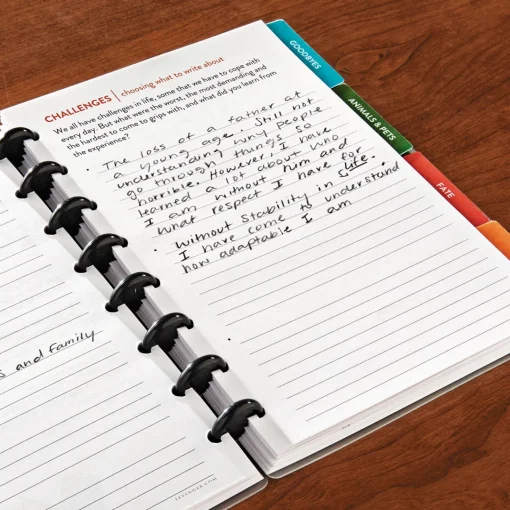 GOODBYES
CHALLENGES | choosing what to write about
We all have challenges in life, some that we have to cope with
every day. But what were the worst, the most demanding and
the hardest to come to grips with, and what did you learn from
the experience?
ANIMALS & PETS
FATE
• The loss of a father at
a young age. Still not
understanding why people
go through things so
horrible. However, I have
learned a lot about who
I am without him and
what respect I have for life.
• Without stability in
I have come to understand
how adaptable I am
and Family
LEVENGER.COM